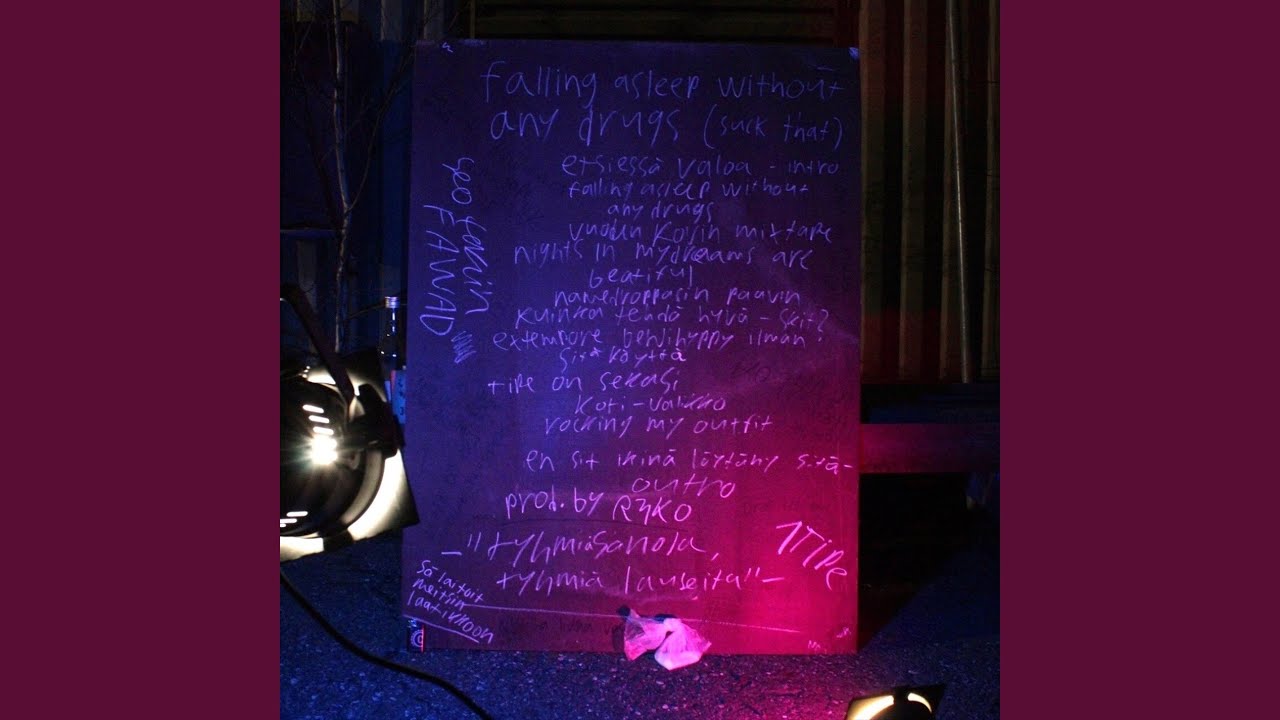 falling asleep without
any drugs (suck that)
etsiessä valoa - intro
falling asleep without
any drugs
vuoden kovin mixtape
nights in my dreams are
beatiful
namedroppasin paavin
kuinka tehdä hyvä - skit?
extempore benjihyppy ilman
sit* köyttä
tipe on sekasi
koti-valikko
rocking my outfit
en sit ikinä löytäny sitä-
outro
prod. by RYKO
- "tyhmiä sanoja,
tyhmiä lauseita" -
FAWAD
1TIPE
sä laitoit
meitsin
laatikkoon